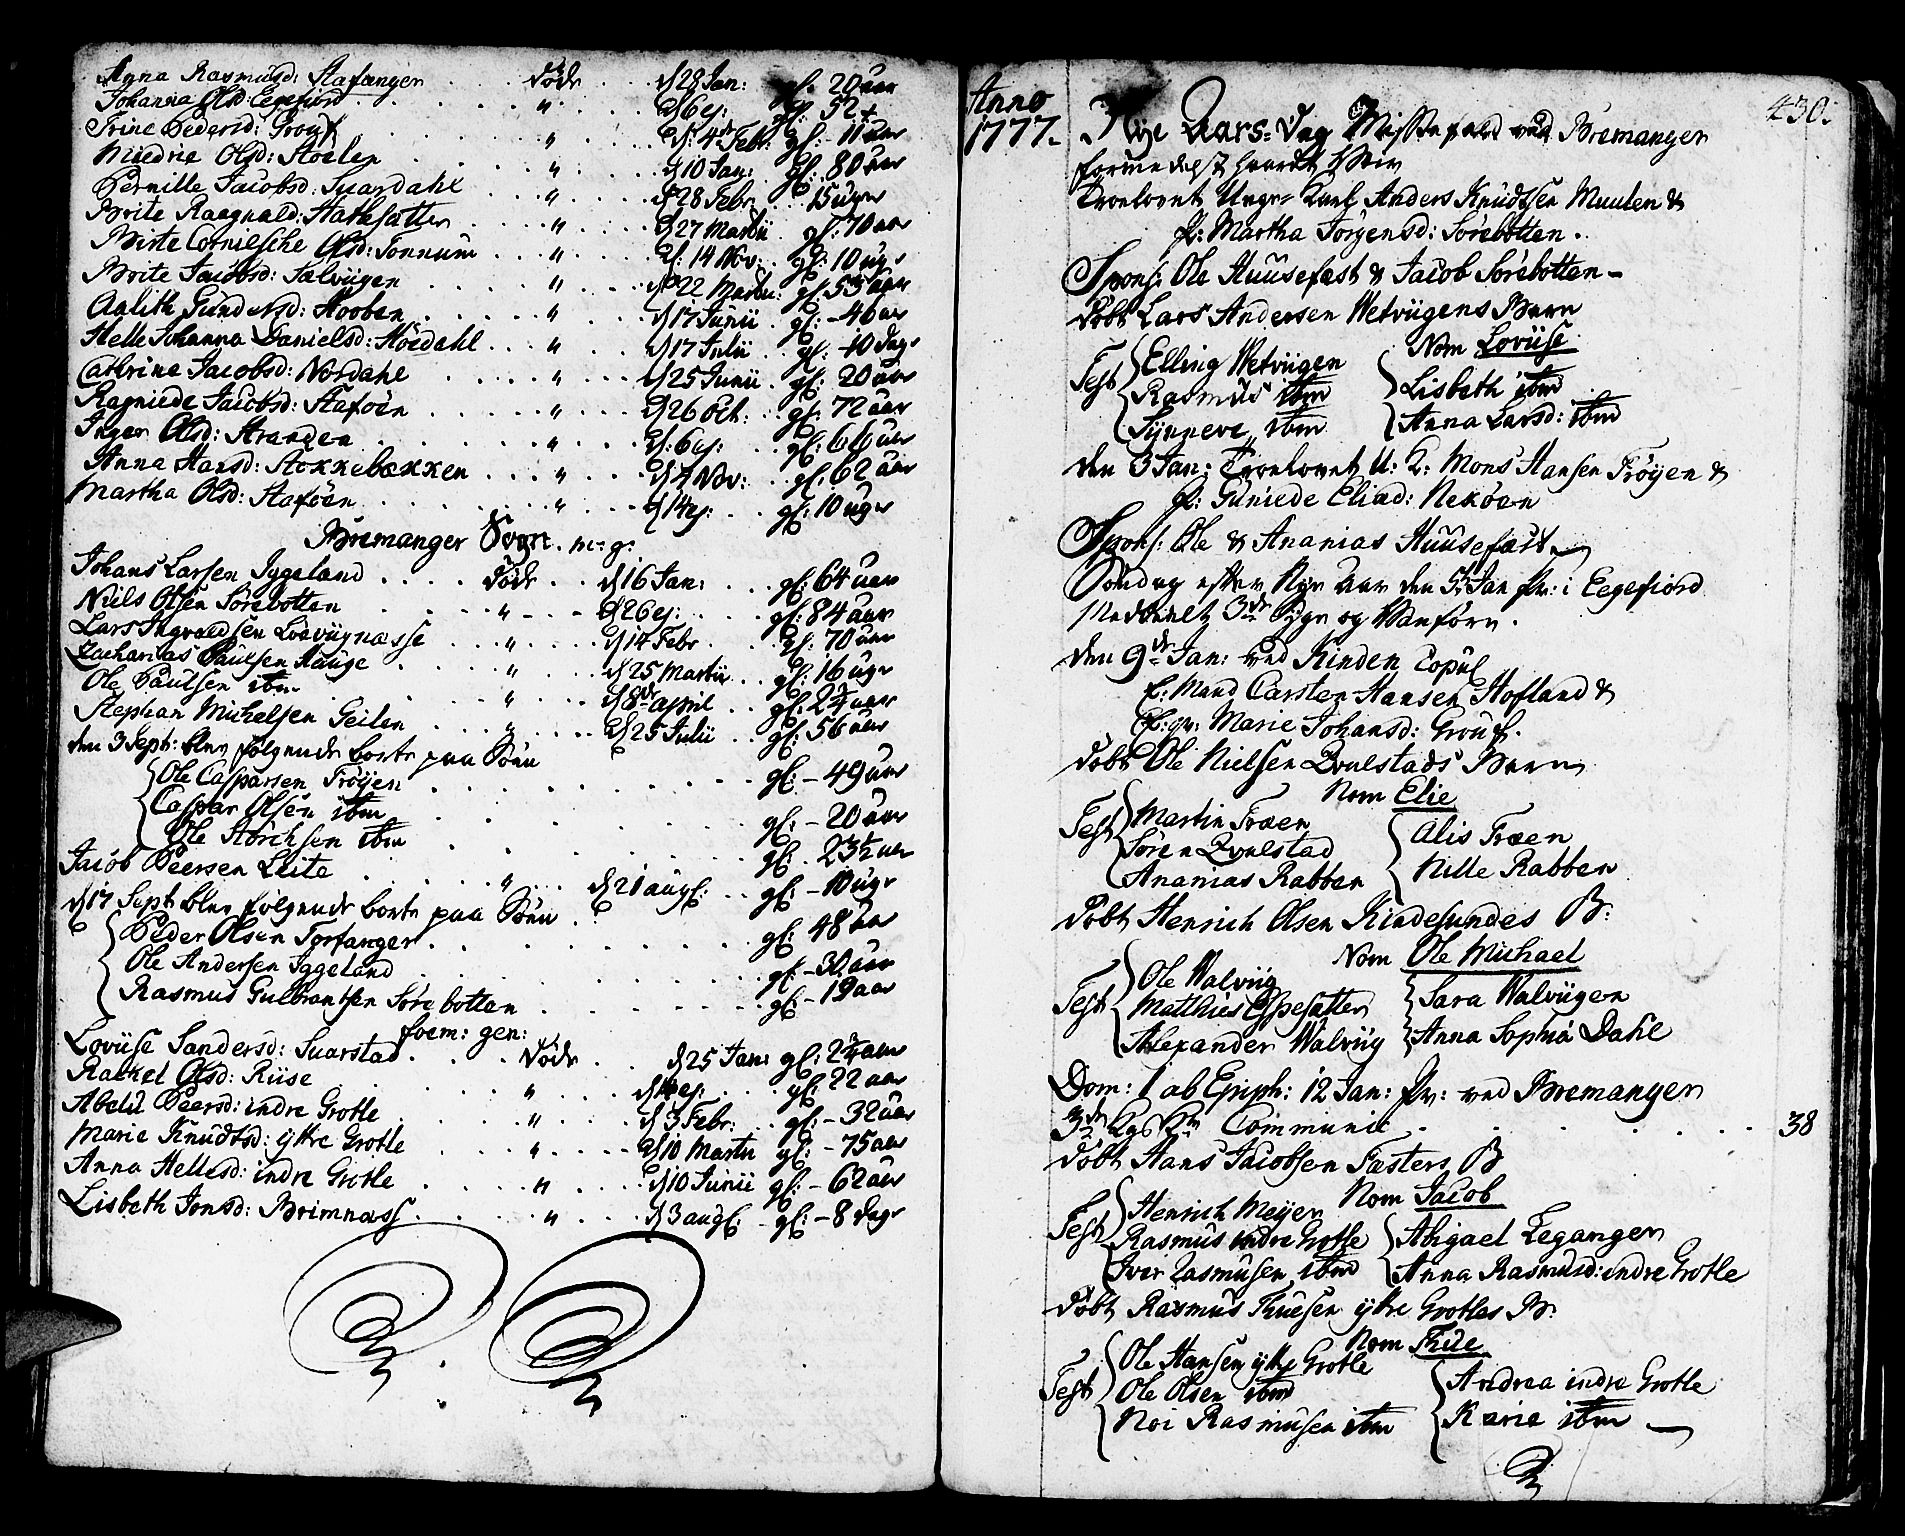 Anna Rasmusd: Stafanger . . . døde . . . d 28 Jan: gl. 20 aar
Johanna Olsd: Eegefiord . . . " . . . d 6 ej: gl. 52 +
Trine Pedersd: Grouf . . . " . . . d: 4de Febr: gl: 11 aar
Olsd: Stoelen . . . " . . . d 10 Jan: gl: 80 aar
Pernille Jacobsd: Suardahl . . . " . . . d 28 Febr . . 15 uger
Brite Raagnald: . . . " . . . d 27 Martii gl: 70 aar
Birte Cornelsche Olsd: Tonnum . . . " . . . d: 14 Nov: gl: 10 uger
Brite Jacobsd: Salvügen . . . " . . . d 22 Martii: gl 55 aar
Aalith Gundersd: Hooben . . . " . . . d 17 Junii gl: - 46 aar
Helle Johanna Danielsd: Höedahl . . . " . . . d 17 Julii . . gl: - 10 dage
Cathrine Jacobsd: Nordahl . . . " . . . d 25 Junii . gl: 20 aar
Ragniede Jacobsd: Stafoen . . . " . . . d 26 Oct: gl: 72 aar
Inger Olsd: Stranden . . . " . . . d: 6 ej: . . gl: 66 aar
Anna Hansd: Stokkebækken . . . " . . . d 4 Nov: . . gl: 62 aar
Martha Olsd: Stafoen . . . " . . . d 14 ej: . . gl: 10 uger
Bremanger Sogn. m: g:
Johans Larsen Iggeland . . . døde . . d 16 Jan: . . gl: 64 aar
Niels Olsen Sørebotten . . . " . . . d 26 ej: . . gl: 84 aar
Lars Ingvaldsen . . . " . . . d 14 Febr . . gl: 70 aar
Zacharias Paulsen Hauge . . . " . . . d 25 Martii . . gl: 16 uger
Ole Paulsen ibm . . . " . . . d 8de april . . gl: 2½ aar
Stephan Michelsen Geilen . . . " . . . d 25 Julii . . gl: 56 aar
den 3 Sept: blev følgende borte paa Søen
Ole Casparsen Frøyen . . . gl: - 49 aar
Caspar Olsen ibm . . . gl: - 20 aar
Ole Storchsen ibm . . . gl: 23½ aar
Jacob Peersen Leite . . . " . . . d 21 augs: . . gl: - 10 uger
d 17 Sept blev følgende borte paa Søen
Peder Olsen Torfanger . . . gl: 48 aar
Ole Andersen Iggeland . . . gl: - 30 aar
Rasmus Gulbrantsen Søre botten . . . gl: - 19 aar
foem: gen:
Lovüse Sandersd: Suarstad . . . døde . . d 25 Jan: gl: 2¼ aar
Rachel Olsd: Riise . . . " . . . d ej: . . gl: 22 aar
Abelü Peersd: indre Grotle . . . " . . . d 3 Febr: . . gl: - 32 aar
Marie Knudtsd: ÿtre Grotle . . . " . . . d 10 Martii gl: - 75 aar
Anna Hellesd: indre Grotle . . . " . . . d 10 Junii gl: - 62 aar
Lisbeth Jonsd: Brimnass . . . " . . . d 3 augs: gl: - 8 dage
Anno 1777.
430.
Nye Aars-Dag Messefald ved Bremanger
formedelst haardt Veir
Troelovet Unge-Karl Anders Knudtsen Muulen &
P: Martha Jörgensd: Sørebotten.
Spons: Ole Huusefast & Jacob Sørebotten -
døbt Lars Andersen Wetvügens Barn
Nom Lovüse
Test Elling Wetvügen
Rasmus ibm
Synneve ibm
Lisbeth ibm
Anna Larsd: ibm
den 3 Jan: Troelovet U: K: Mons Hansen Frøyen &
P: Guniede Eliad: Nekøen
Spons: Ole & Ananias Huusefast
Søndag efter Nye Aar den 5te Jan Pr: i Eegefiord
Meddeelt 3de Syge og Vanføre.
den 9de Jan: ved Kinden Copul
E: Mand Carsten Hansen Hofland &
Marie Johansd: Grouf.
døbt Ole Nielsen Qvelstads Barn
Nom Elie
Test Martin Fræen
Søren Qvelstad
Ananias Rabben
Alis Fræen
Nille Rabben
døbt Henrich Olsen Kindesundes B:
Nom Ole Michael
Test Ole Walvüg
Matthies Espesatter
Alexander Walvüg
Sara Walvügen
Anna Sophia Dahl
Dom: 1 ab Epiph: 12 Jan: Pr: ved Bremanger
Communic . . . 38
døbt Hans Jacobsen Fasters B
Nom Jacob
Test Henrich Meyer
Rasmus indre Grotle
Iver Rasmusen ibm
Abigael Leganger
Anna Rasmusd: indre Grotle
døbt Rasmus Thuesen ÿtre Grotles B:
Nom Thüe
Test Ole Hansen ÿtre Grotle
Ole Olsen ibm
Noi Rasmusen ibm
Andrea indre Grotle
Karie ibm